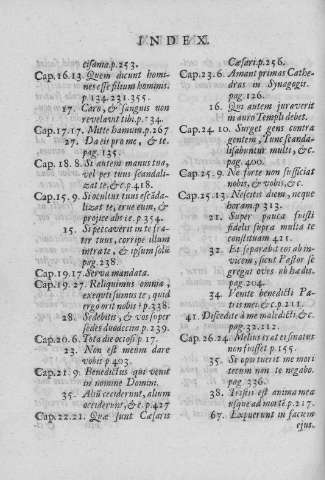 INDEX.
cissima.p.253.
Cap.16.13. Quem dicunt homi-
nes esse filium hominis.
p.134.231.355.
17. Caro, & sanguis non
revelavit tibi.p.134.
Cap.17.17. Mitte hamum.p.267
27. Da ei pro me, & te.
pag.135.
Cap.18.8. Si autem manus tua,
vel pes tuus scandali-
zat te, &c.p.418.
Cap.15.9. Si oculus tuus escāda-
lizat te, erue eum, &
projice abs te.p.354.
15. Si peccaverit in te fra-
ter tuus, corripe illum
intra te, & ipsum solū
pag.238.
Cap.19.17. Serva mandata.
Cap.19.27. Reliquimus omnia,
& exequuti sumus te, quid
ergo erit nobis?p.238.
28. Sedebitis, & vos super
sedes duodecim p.239.
Cap.20.6. Tota die otiosi?p.17.
23. Non est meum dare
vobis p.403.
Cap.21.9. Benedictus qui venit
in nomine Domini.
35. Aliū ceciderunt, alium
occiderunt, &c.p.427
Cap.22.21. Quæ sunt Cæsaris
Cæsari.p.256.
Cap.23.6. Amant primas Cathe-
dras in Synagogis.
pag.126.
16. Qui autem juraverit
in auro Templi debet.
Cap.24.10. Surget gens contra
gentem, Tunc scanda-
lisabuntur multi, &c.
pag.400.
Cap.25.9. Ne forte non sufficiat
nobis, & vobis, &c.
Cap.25.13. Nescitis diem, neque
horam.p.313.
21. Super pauca fuisti
fidelis supra multa te
constituam 421.
32. Et separabit eos ab in-
vicem, sicut Pastor se
gregat oves ab hædis.
pag.204.
34. Venite benedicti Pa-
tris mei, &c.p.211.
41. Discedite à me maledicti, &c.
pag.32.112.
Cap.26.24. Melius erat ei si natus
non fuisset p.155.
35. Si oportuerit me mori
tecum non te negabo.
pag.336.
38. Tristis est anima mea
usque ad mortē.p.217.
67. Expuerunt in faciem
ejus.